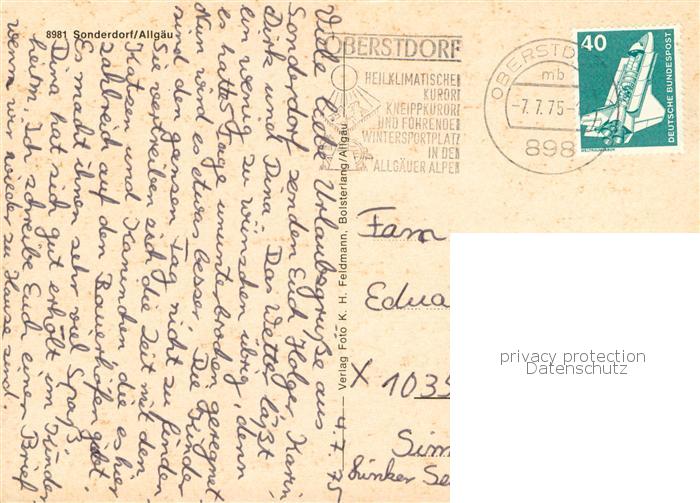 8981 Sonderdorf/Allgäu
Viele liebe Urlaubsgrüße aus
Sonderdorf senden Euch Holger, Karin,
Dirk und Dina. Das Wetter läßt
ein wenig zu wünschen übrig, denn
es hat Tage ununterbrochen geregnet.
Nun wird es etwas besser. Die Kinder
sind den ganzen Tag nicht zu finden.
Sie vertreiben sich die Zeit mit den
Katzen und Kaninchen die es hier
zahlreich auf den Bauernhöfen gibt.
Es macht ihnen sehr viel Spaß.
Dina hat sich gut erholt im Kinder
heim. Ich schreibe Euch einen Brief
wenn wir wieder zu Hause sind.
4.7.75
Verlag Foto K. H. Feldmann, Bolsterlang/Allgäu
OBERSTDORF
HEILKLIMATISCHER
KURORT
KNEIPPKURORT
UND FÜHRENDER
WINTERSPORTPLATZ
IN DEN
ALLGÄUER ALPEN
OBERSTD
mb
-7.7.75-
898
40
DEUTSCHE BUNDESPOST
Fam
Edua
X 1035
Sim
privacy protection
Datenschutz